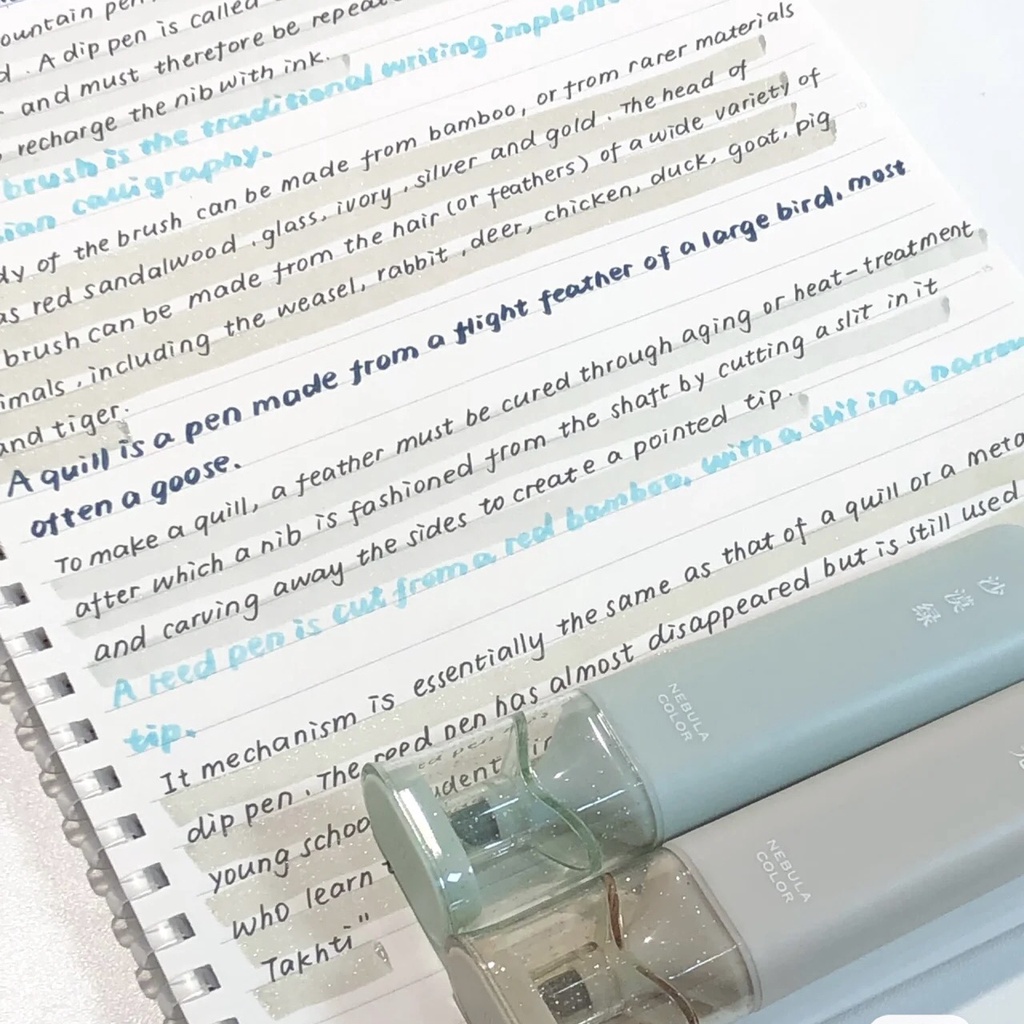 ountain pen
. A dip pen is called
and must therefore be repeat
recharge the nib with ink.
brush is the traditional writing implem
sian calligraphy.
dy of the brush can be made from bamboo, or from rarer materials
as red sandalwood , glass, ivory , silver and gold . The head of
brush can be made from the hair (or feathers) of a wide variety of
imals , including the weasel, rabbit , deer, chicken, duck, goat, pig
and tiger.
A quill is a pen made from a flight feather of a large bird, most
often a goose.
To make a quill, a feather must be cured through aging or heat-treatment
after which a nib is fashioned from the shaft by cutting a slit in it
and carving away the sides to create a pointed tip.
A reed pen is cut from a red bamboo, with a slit in a narrow
tip.
It mechanism is essentially the same as that of a quill or a meta
dip pen . The reed pen has almost disappeared but is still used
young schoo udent in
who learn
Takhti"
沙漠绿
NEBULA
COLOR
NEBULA
COLOR